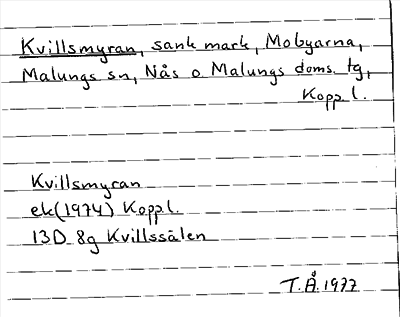 Kvillsmyran, sank mark, Mobyarna,
Malungs sn, Nås o Malungs doms. tg,
Kopp l.
Kvillsmyran
ek(1974) Koppl.
13D 8g Kvillssälen
T.Å. 1977